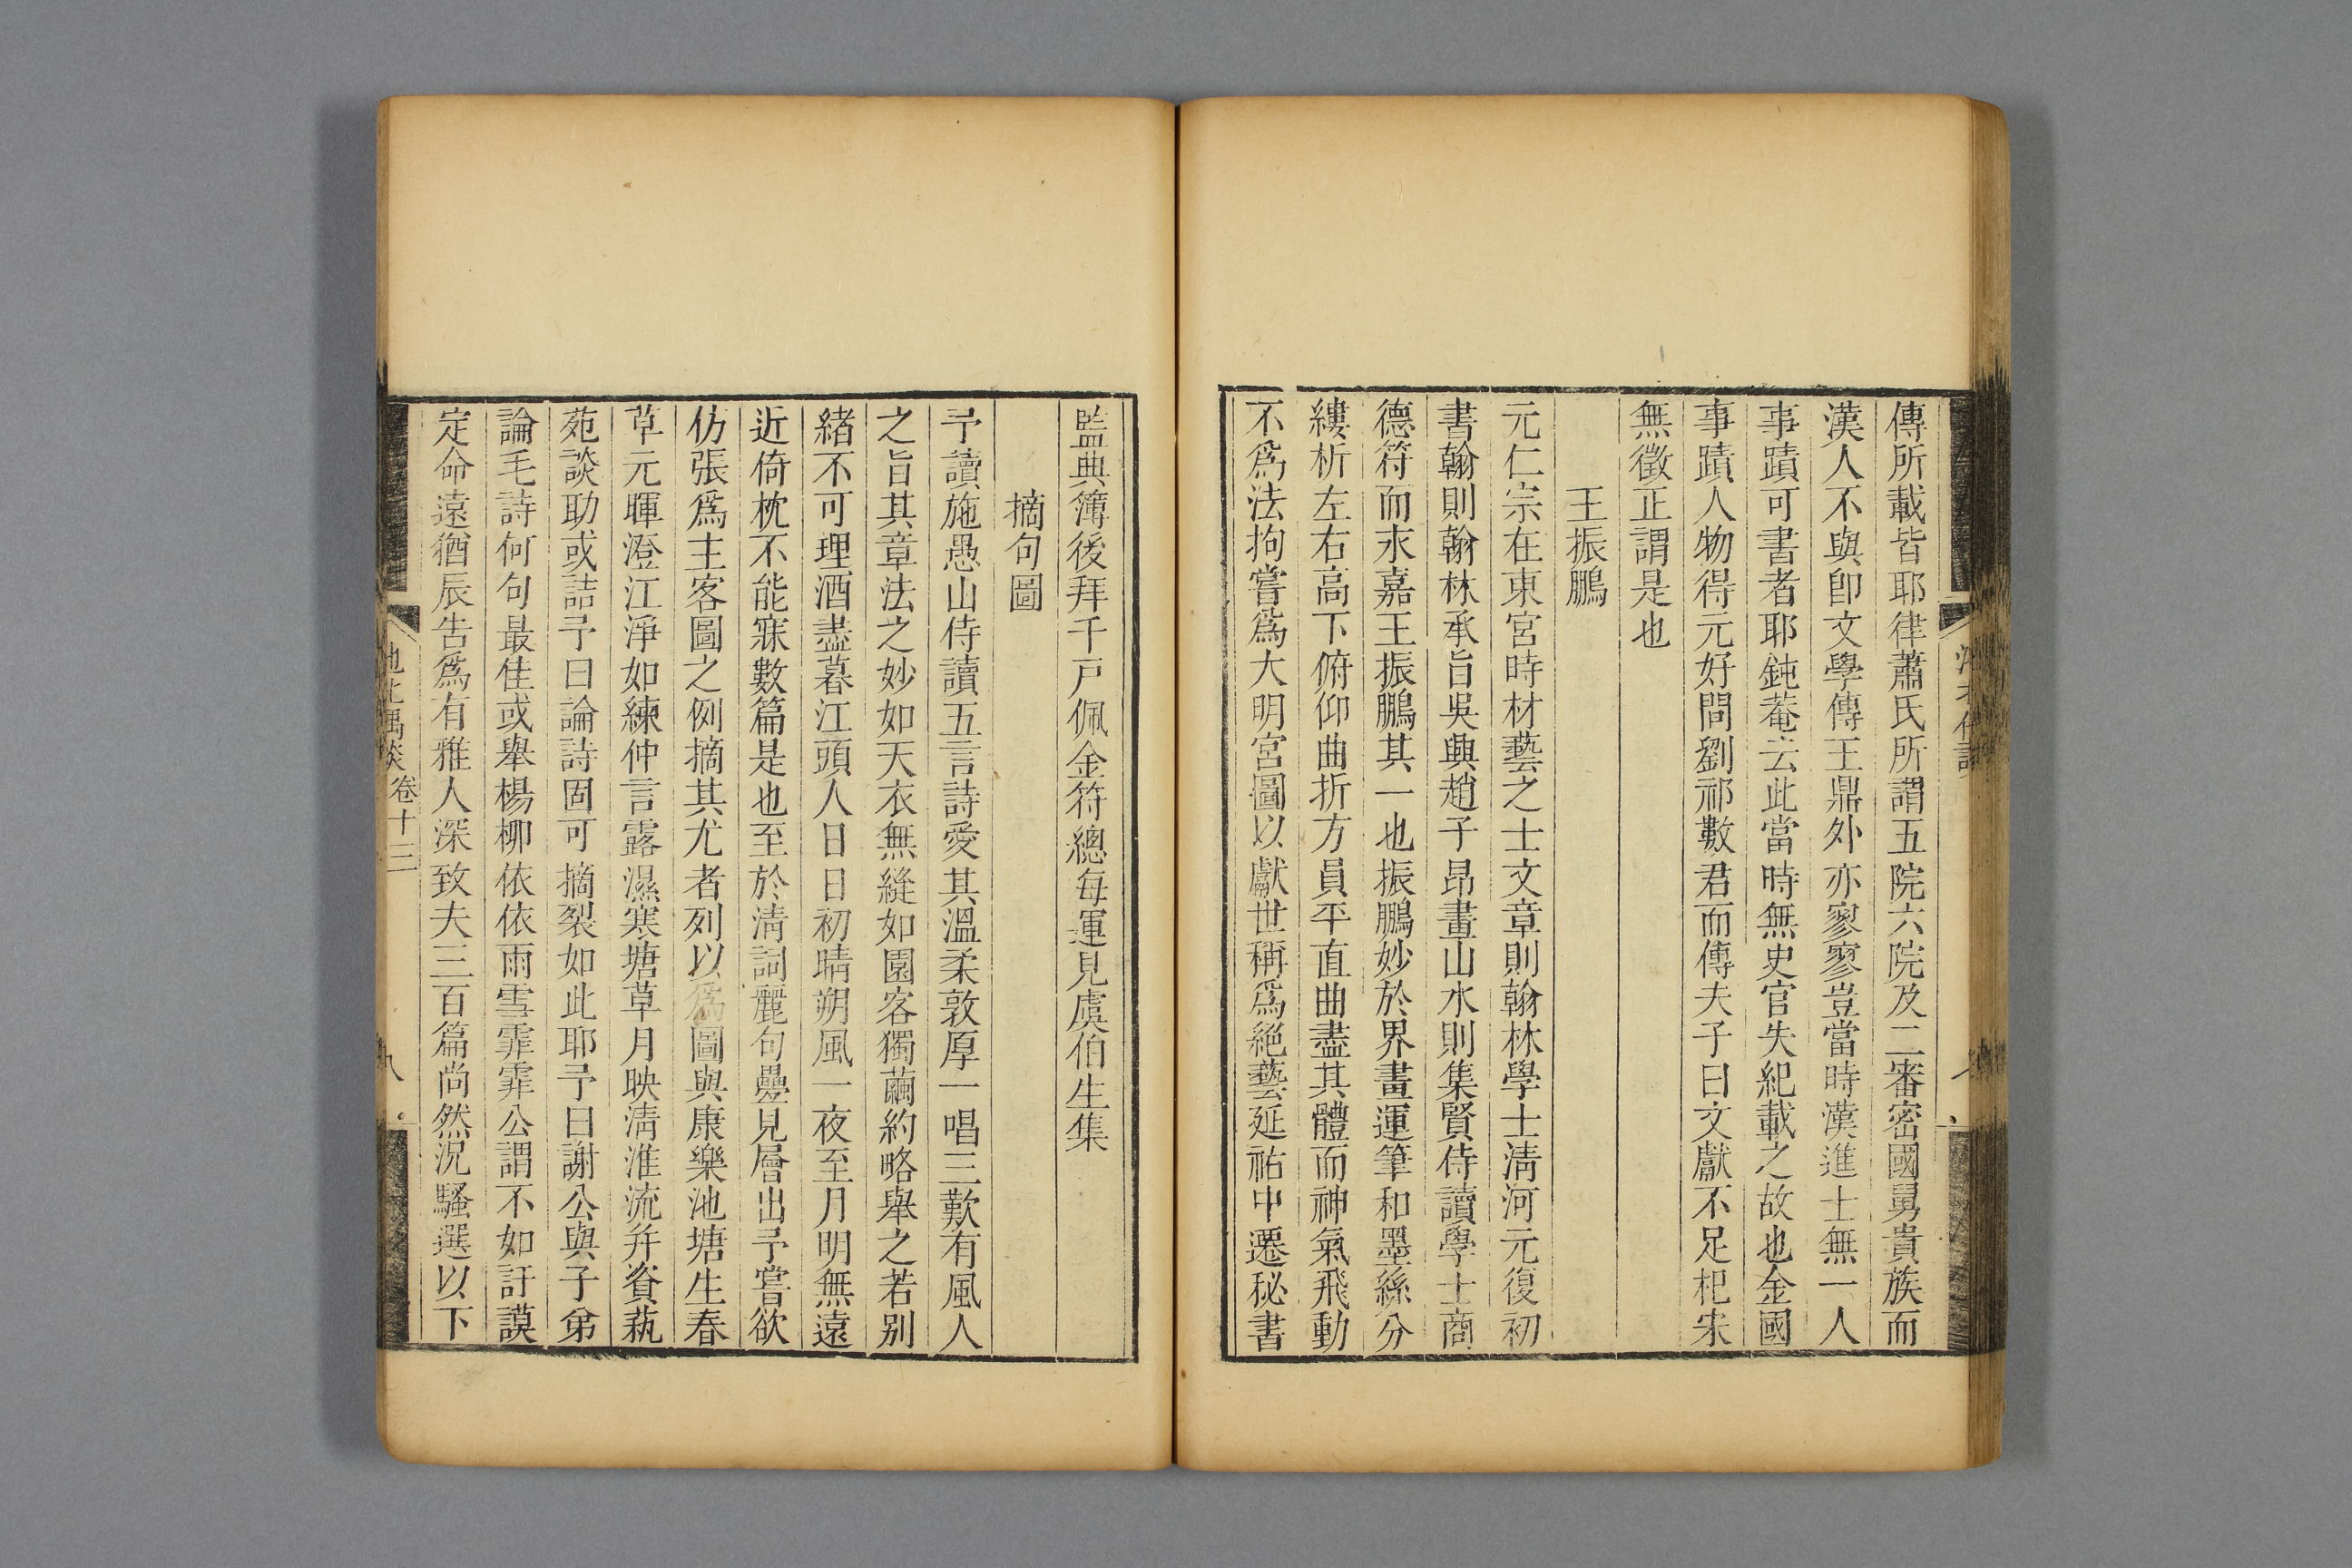 傳所載皆耶律蕭氏所謂五院六院及二審密國舅貴族而
漢人不與卽文學傳王鼎外亦寥寥豈當時漢進士無一人
事蹟可書者耶鈍菴云此當時無史官失紀載之故也金國
事蹟人物得元好問劉祁數君而傳夫子曰文獻不足杞宋
無徵正謂是也
王振鵬
元仁宗在東宮時材藝之士文章則翰林學士淸河元復初
書翰則翰林承旨吳興趙子昂畫山水則集賢侍讀學士商
德符而永嘉王振鵬其一也振鵬妙於界畫運筆和墨絲分
縷析左右高下俯仰曲折方員平直曲盡其體而神氣飛動
不爲法拘嘗爲大明宮圖以獻世稱爲絕藝延祐中遷秘書
監典簿後拜千戶佩金符總每運見虞伯生集
摘句圖
予讀施愚山侍讀五言詩愛其溫柔敦厚一唱三歎有風人
之旨其章法之妙如天衣無縫如園客獨繭約略舉之若別
緒不可理酒盡暮江頭人日日初晴朔風一夜至月明無遠
近倚枕不能寐數篇是也至於淸詞麗句疊見層出予嘗欲
仿張爲主客圖之例摘其尤者列以爲圖與康樂池塘生春
草元暉澄江淨如練仲言露濕寒塘草月映淸淮流幷資藝
苑談助或詰予曰論詩固可摘裂如此耶予曰謝公與子弟
論毛詩何句最佳或舉楊柳依依雨雪霏霏公謂不如訏謨
定命遠猶辰告爲有雅人深致夫三百篇尚然況騷選以下
池北偶談 卷十三 八